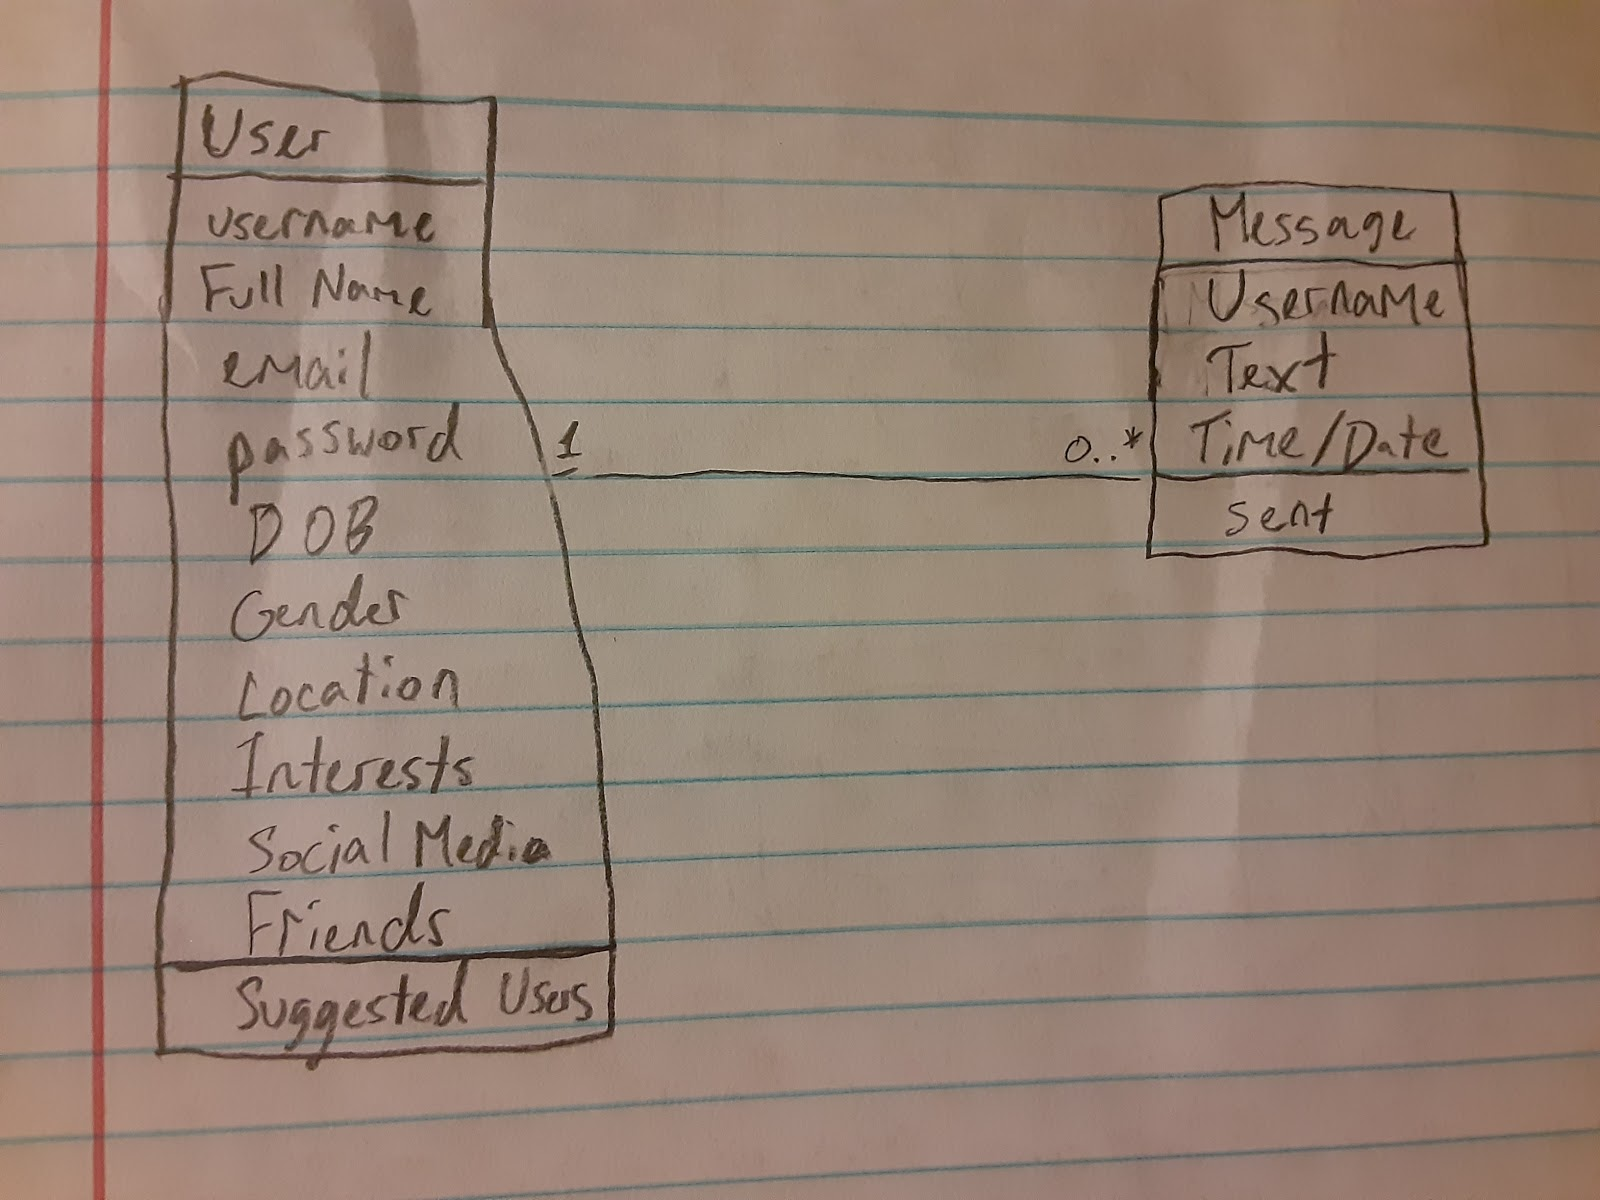 User
username
Full Name
email
password
DOB
Gender
Location
Interests
Social Media
Friends
Suggested Users
1
0..*
Message
Username
Text
Time/Date
sent